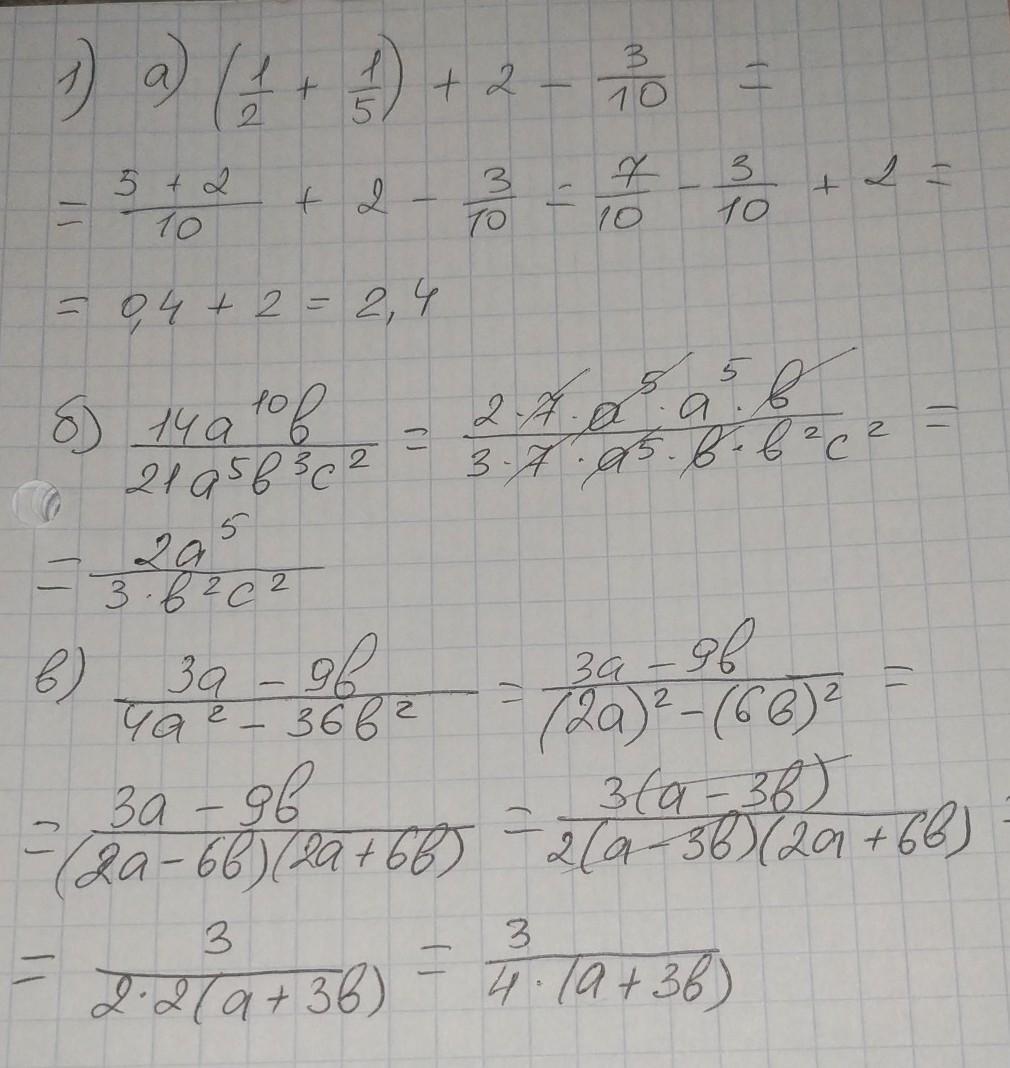 1) а) (1/2 + 1/5) + 2 − 3/10 =
= (5 + 2)/10 + 2 − 3/10 = 7/10 − 3/10 + 2 =
= 0,4 + 2 = 2,4
б) 14a¹⁰в/21a⁵в³c² = 2·7·a⁵·a⁵·в/3·7·a⁵·в·в²c² =
= 2a⁵/3·в²c²
в) (3a − 9в)/(4a² − 36в²) = (3a − 9в)/((2a)² − (6в)²) =
= (3a − 9в)/((2a − 6в)(2a + 6в)) = 3(a − 3в)/(2(a − 3в)(2a + 6в)) =
= 3/(2·2(a + 3в)) = 3/(4·(a + 3в))